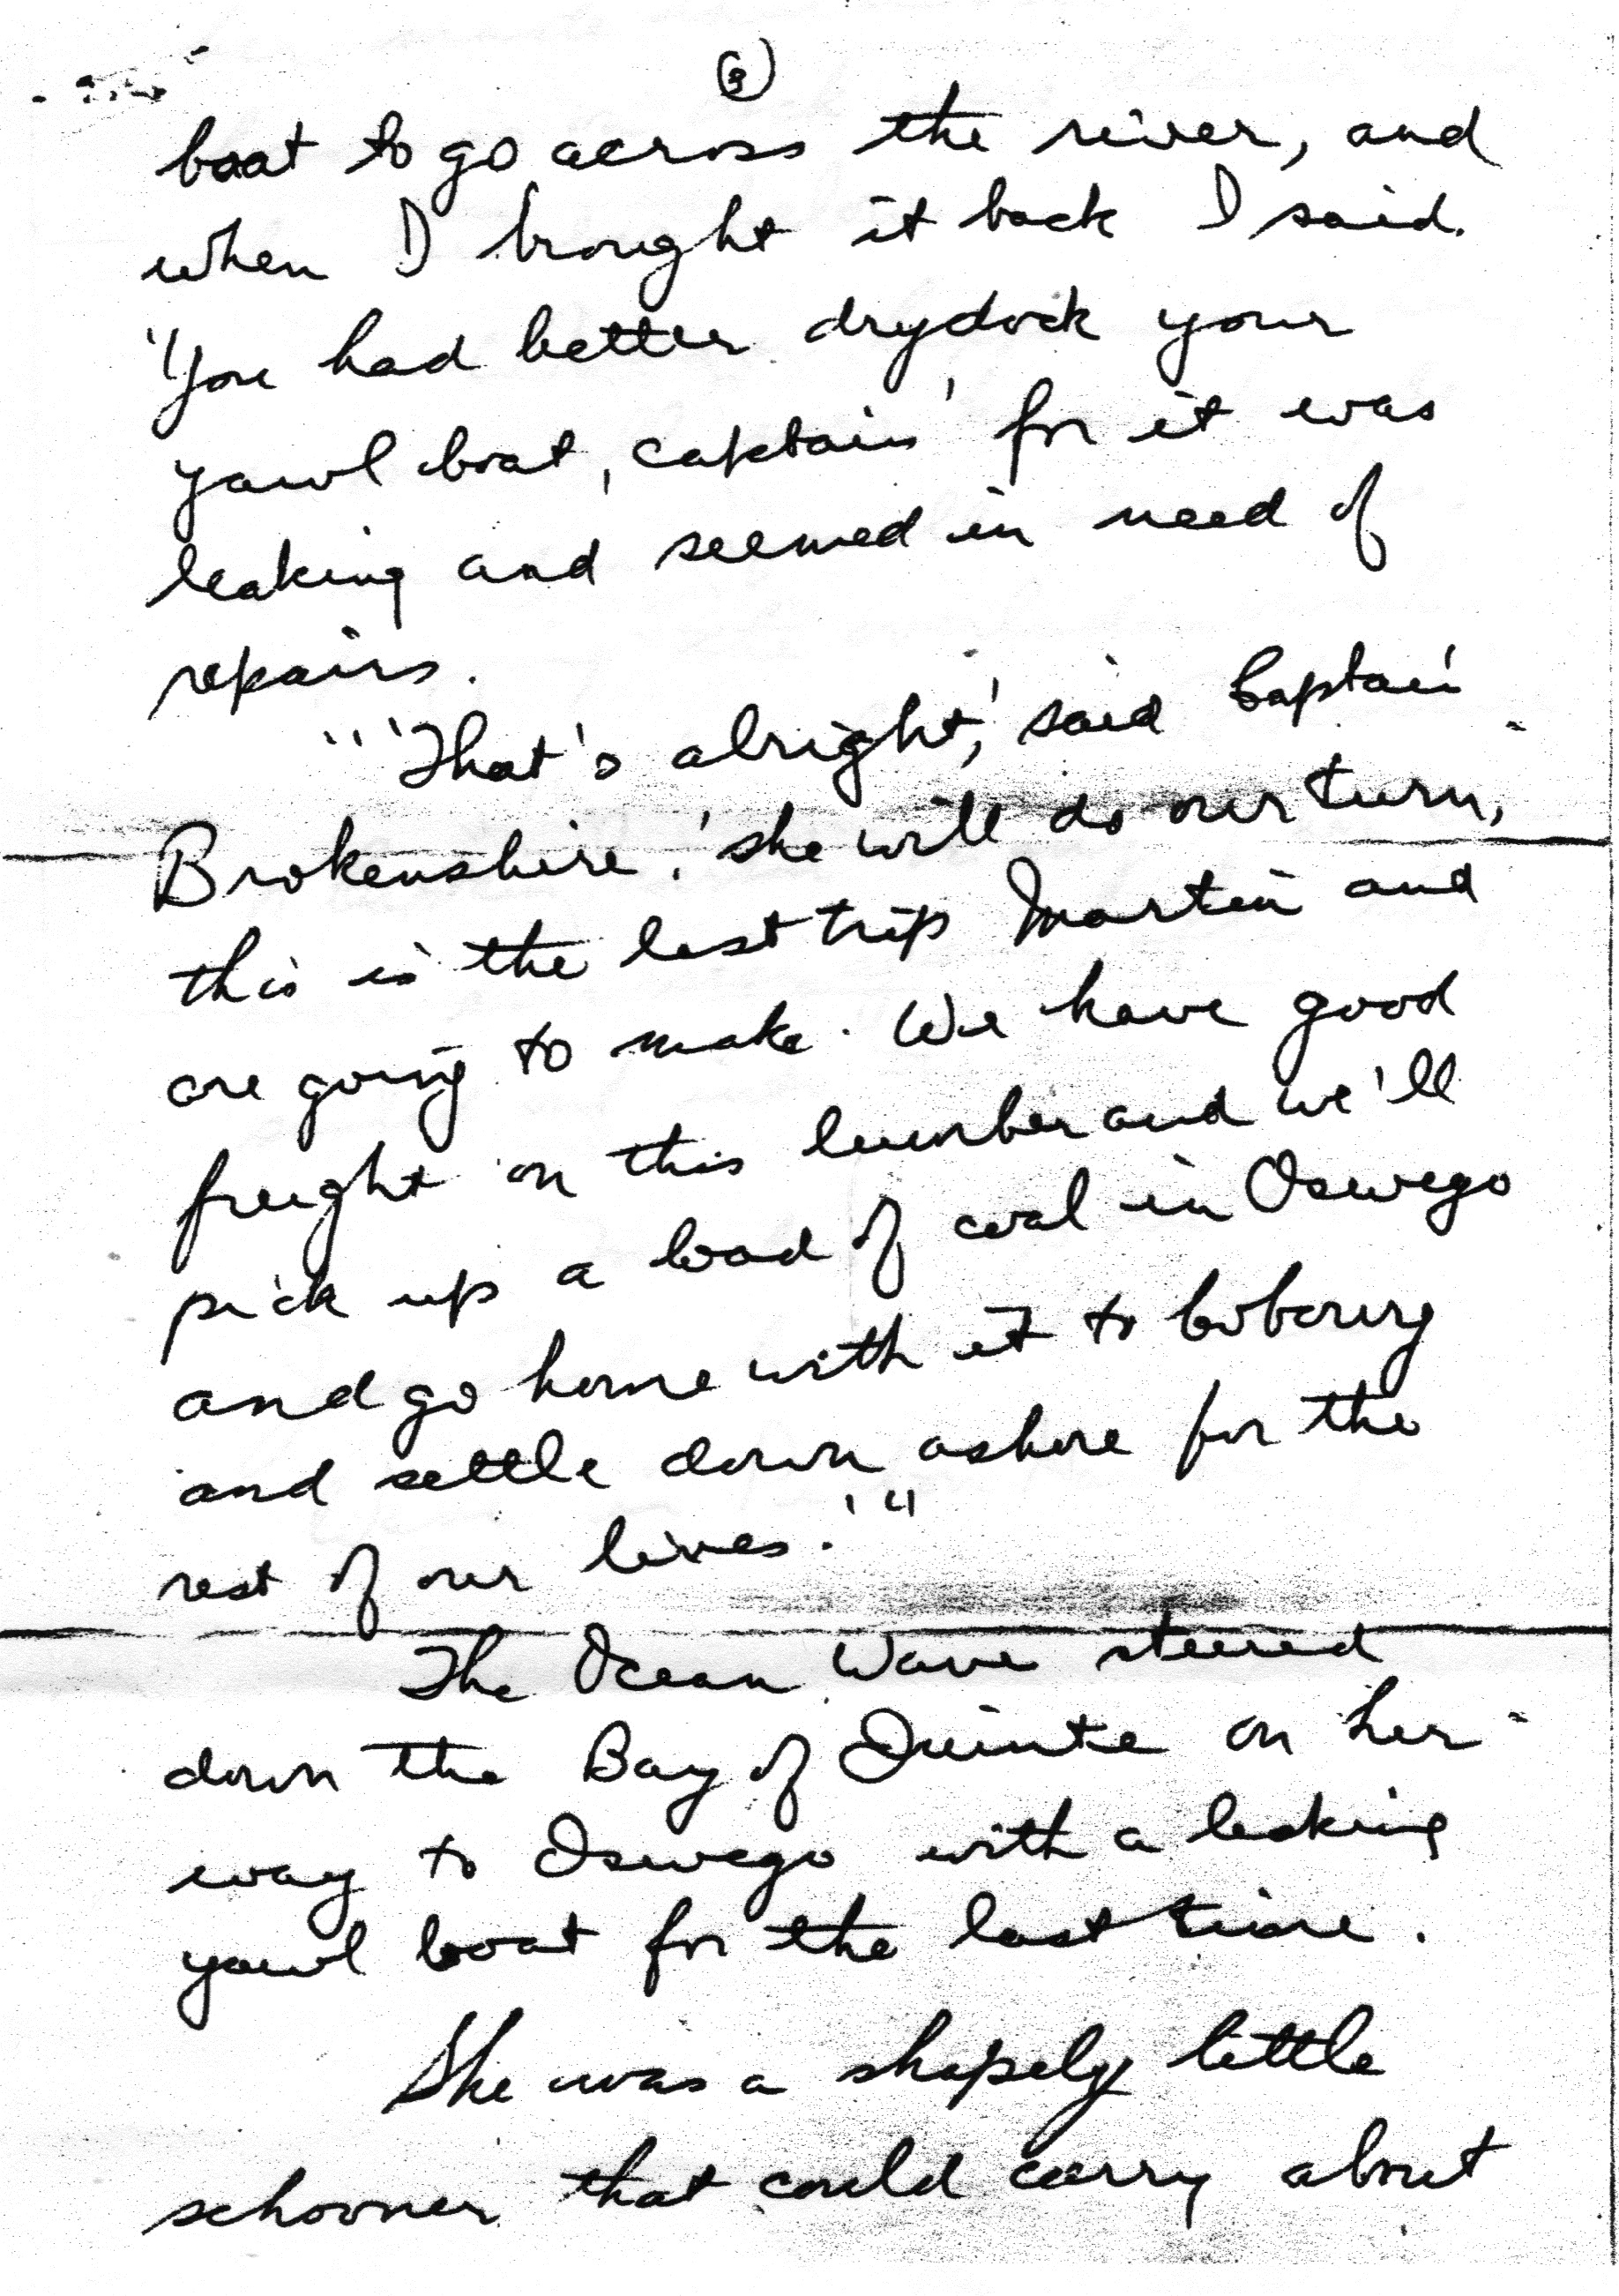 ③
boat to go across the river, and
when I brought it back I said.
'You had better drydock your
yawl boat, captain' for it was
leaking and seemed in need of
repairs.
"'That's alright,' said Captain
Brokenshire. 'she will do our turn,
this is the last trip Martin and
are going to make. We have good
freight on this lumber and we'll
pick up a load of coal in Oswego
and go home with it to Cobourg
and settle down ashore for the
rest of our lives.'"
The Ocean Wave steered
down the Bay of Quinte on her
way to Oswego with a leaking
yawl boat for the last time.
She was a shapely little
schooner that could carry about